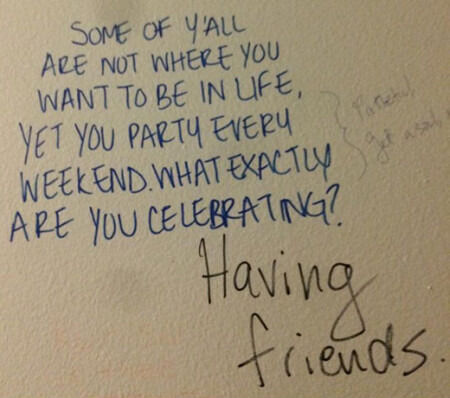 SOME OF Y'ALL
ARE NOT WHERE YOU
WANT TO BE IN LIFE,
YET YOU PARTY EVERY
WEEKEND. WHAT EXACTLY
ARE YOU CELEBRATING?
Having
friends.